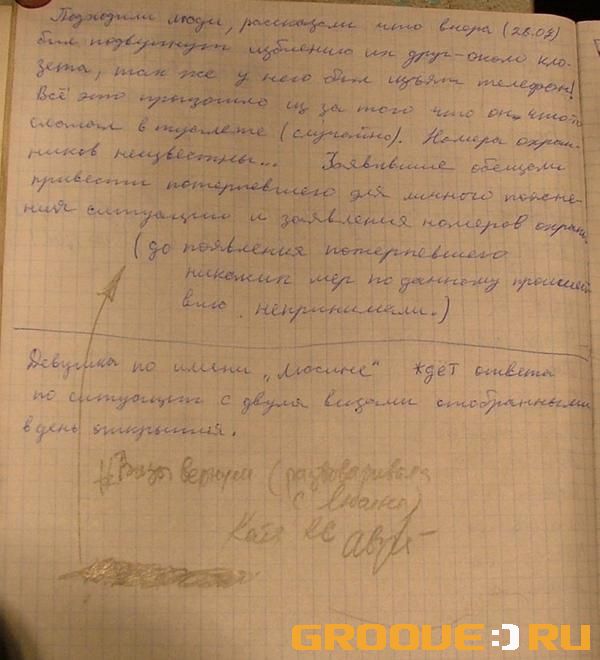 Подходили люди, рассказали что вчера (28.02)
был подвержен избиению их друг-около кло-
зета, так же у него был изъят телефон!
Всё это произошло из за того что он что-то
сломал в туалете (случайно). Номера охран-
ников неизвестны... Заявившие обещали
привести потерпевшего для личного поясне-
ния ситуации и заявления номеров охран.
(до появления потерпевшего
никаких мер по данному происшест
вию непринимали.)
Девушка по имени „Люсине" ждёт ответа
по ситуации с двумя вазами отобранными
в день открытия.
Вазы вернули (разговаривала
с
Катя КС
GROOVE:)RU